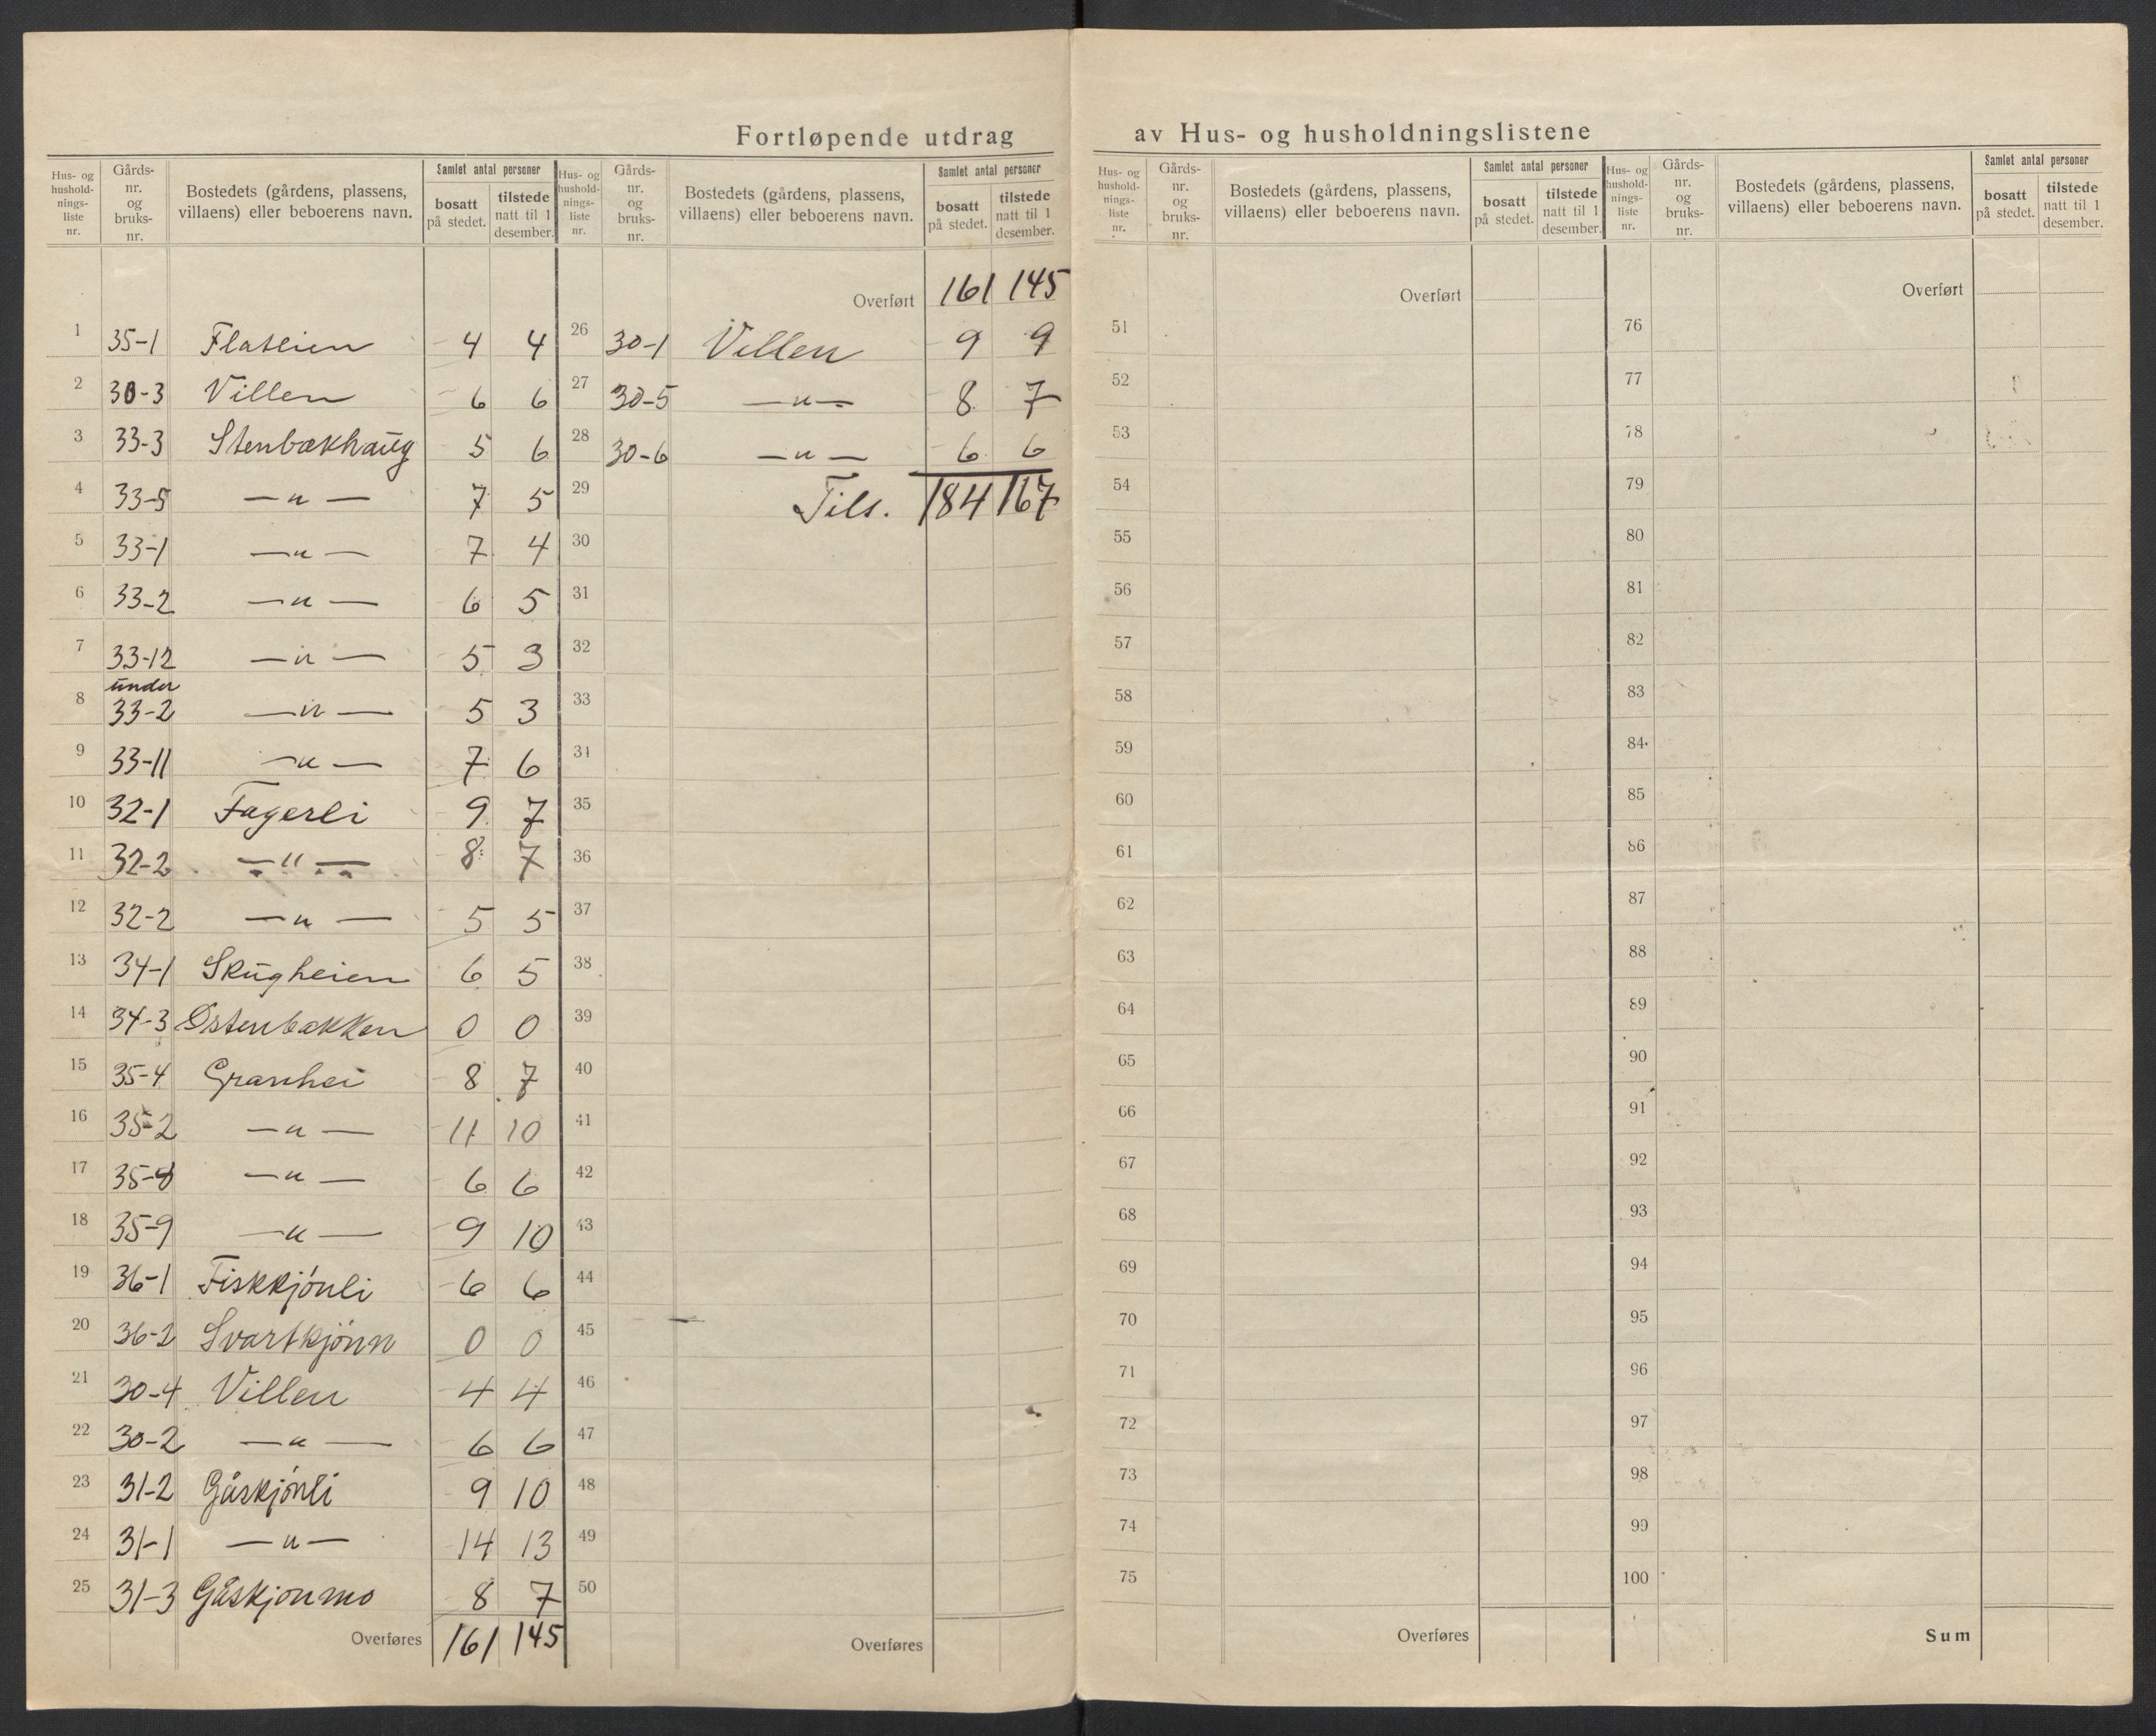 Fortløpende utdrag av Hus- og husholdningslistene
Hus- og husholdnings-liste nr. Gårds-nr. og bruks-nr. Bostedets (gårdens, plassens, villaens) eller beboerens navn. Samlet antal personer bosatt på stedet. tilstede natt til 1 desember.
1 35-1 Flatlien 4 4
2 30-3 Villen 6 6
3 33-3 Stenbækhaug 5 6
4 33-5 —"— 7 5
5 33-1 —"— 7 4
6 33-2 —"— 6 5
7 33-12 —"— 5 3
8 under 33-2 —"— 5 3
9 33-11 —"— 7 6
10 32-1 Fagerli 9 7
11 32-2 —"— 8 7
12 32-2 —"— 5 5
13 34-1 Skugheien 6 5
14 34-3 Østenbakken 0 0
15 35-4 Granhei 8 7
16 35-2 —"— 11 10
17 35-8 —"— 6 6
18 35-9 —"— 9 10
19 36-1 Fiskkjönli 6 6
20 36-2 Svartkjönn 0 0
21 30-4 Villen 4 4
22 30-2 —"— 6 6
23 31-2 Gåskjönli 9 10
24 31-1 —"— 14 13
25 31-3 Gåskjonmo 8 7
Overføres 161 145
Hus- og husholdnings-liste nr. Gårds-nr. og bruks-nr. Bostedets (gårdens, plassens, villaens) eller beboerens navn. Samlet antal personer bosatt på stedet. tilstede natt til 1 desember.
Overført 161 145
26 30-1 Villen 9 9
27 30-5 —"— 8 7
28 30-6 —"— 6 6
29 Tils. 184 167
30
31
32
33
34
35
36
37
38
39
40
41
42
43
44
45
46
47
48
49
50
Overføres
Hus- og husholdnings-liste nr. Gårds-nr. og bruks-nr. Bostedets (gårdens, plassens, villaens) eller beboerens navn. Samlet antal personer bosatt på stedet. tilstede natt til 1 desember.
Overført
51
52
53
54
55
56
57
58
59
60
61
62
63
64
65
66
67
68
69
70
71
72
73
74
75
Overføres
Hus- og husholdnings-liste nr. Gårds-nr. og bruks-nr. Bostedets (gårdens, plassens, villaens) eller beboerens navn. Samlet antal personer bosatt på stedet. tilstede natt til 1 desember.
Overført
76
77
78
79
80
81
82
83
84
85
86
87
88
89
90
91
92
93
94
95
96
97
98
99
100
Sum